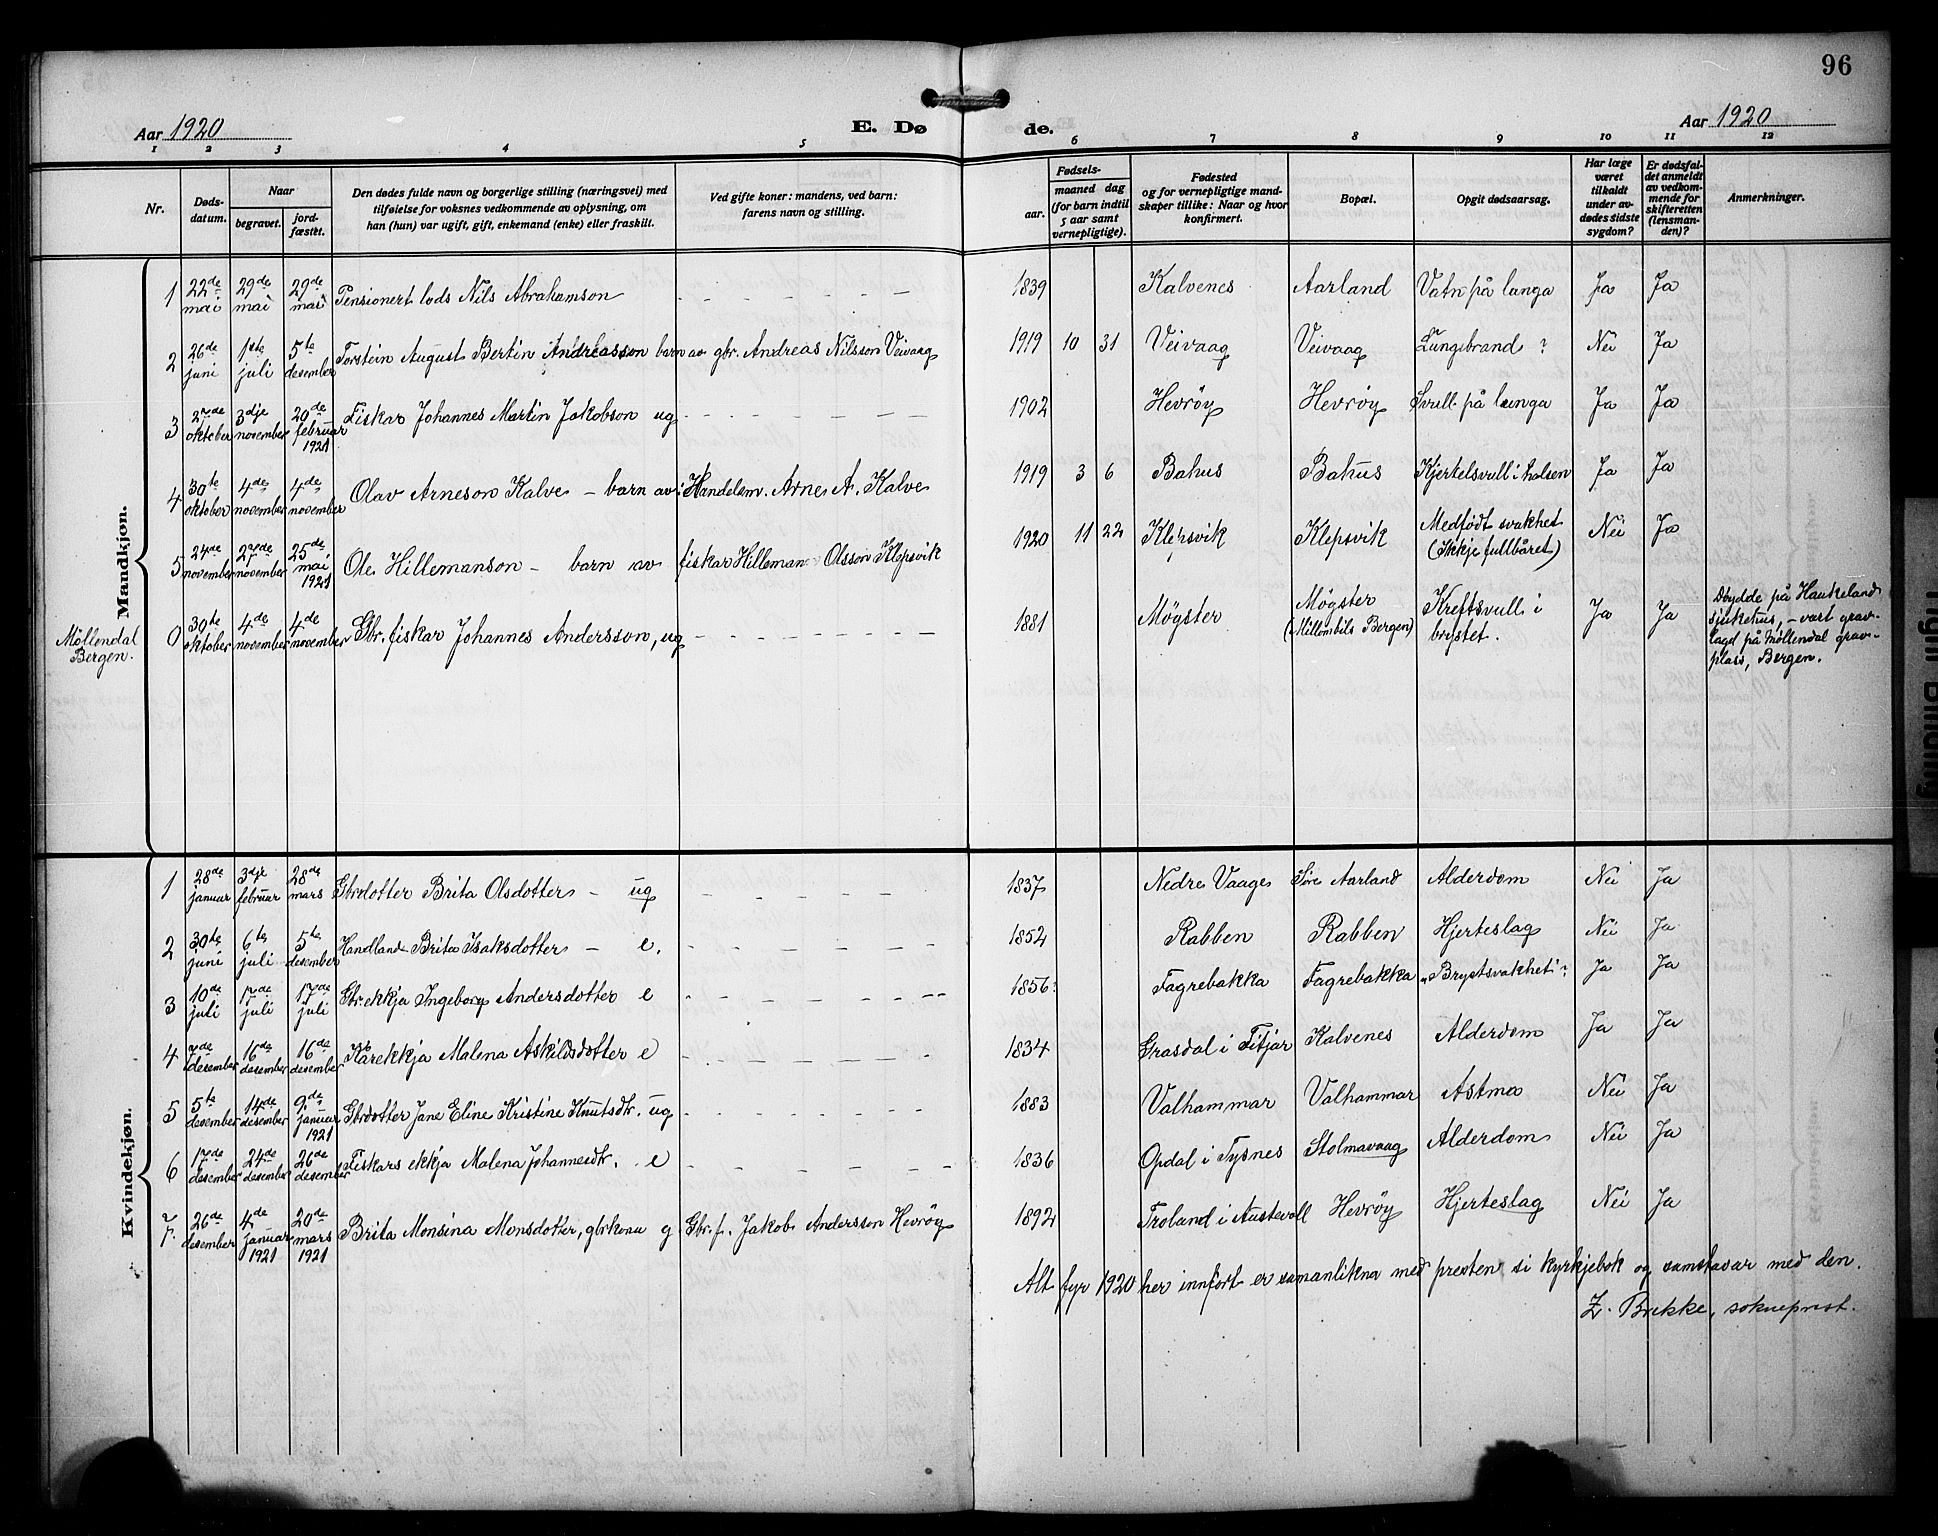 96
Aar 1920
E. Dø
de.
Aar 1920
1 2 3 4 5 6 7 8 9 10 11 12
Nr.
Døds-
datum.
Naar
begravet.
jord-
fæstet.
Den dødes fulde navn og borgerlige stilling (næringsvei) med
tilføielse for voksnes vedkommende av oplysning, om
han (hun) var ugift, gift, enkemand (enke) eller fraskilt.
Ved gifte koner: mandens, ved barn:
farens navn og stilling.
Fødsels-
aar.
maaned dag
(for barn indtil
5 aar samt
vernepligtige).
Fødested
og for vernepligtige mand-
skaper tillike: Naar og hvor
konfirmert.
Bopæl.
Opgit dødsaarsag.
Har læge
været
tilkaldt
under av-
dødes sidste
sygdom?
Er dødsfal-
det anmeldt
av vedkom-
mende for
skifteretten
(lensman-
den)?
Anmerkninger.
Mandkjøn.
1 22de mai 29de mai 29de mai Pensionert lods Nils Abrahamson 1839 Kalvenes Aarland Vatn på lunga Ja Ja
2 26de juni 1ste juli 5te desember Torstein August Bertin Andreasson barn av gbr. Andreas Nilsson Veivaag 1919 10 31 Veivaag Veivaag Lungebrand? Nei Ja
3 27de oktober 3dje november 20de februar 1921 Fiskar Johannes Martin Jakobson ug 1902 Hevrøy Hevrøy Svull på lunga Ja Ja
4 30te oktober 4de november 4de november Olav Arneson Kalve – barn av: Handelsm. Arne A. Kalve 1919 3 6 Bakus Bakus Kjertelsvull i halsen Ja Ja
5 24de november 27de november 25de mai 1921 Ole Hillemanson – barn av fiskar Hilleman Olsson Klepsvik 1920 11 22 Klepsvik Klepsvik Medfødt svakhet (Ikkje fullbåret) Nei Ja
Møllendal
Bergen.
0 30te oktober 4de november 4de november Gbr. fiskar Johannes Andersson, ug 1881 Møgster Møgster (Millombils Bergen) Kreftsvull i brystet. Ja Ja
Døydde på Haukeland
sjukehus, – vart grav-
lagd på Møllendal grav-
plass, Bergen.
Kvindekjøn.
1 28de januar 3dje februar 28de mars Gbrdotter Brita Olsdotter – ug 1837 Nedre Vaage Søre Aarland Alderdom Nei Ja
2 30te juni 6te juli 5te desember Handland Brita Isaksdotter – e. 1852 Rabben Rabben Hjerteslag Nei Ja
3 10de juli 17de juli 17de juli Gbr.ekkja Ingeborg Andersdotter e 1856? Fagrebakka Fagrebakka „Brystsvakheti? Ja Ja
4 7de desember 16de desember 16de desember Kårekkja Malena Askildsdotter e 1834 Grasdal i Fitjar Kalvenes Alderdom Ja Ja
5 5te desember 14de desember 9de januar 1921 Gbrdotter Jane Eline Kristine Knutsdtr. ug 1883 Valhammar Valhammar Astma Nei Ja
6 17de desember 24de desember 26de desember Fiskars ekkja Malena Johannesdtr. e 1836 Opdal i Tysnes Stolmavaag Alderdom Nei Ja
7. 26de desember 4de januar 1921 20de mars 1921 Brita Monsina Monsdotter, gbrkona g. Gbr. f. Jakob Andersson Hevrøy 1892 Troland i Austevoll Hevrøy Hjerteslag Nei Ja
Alt fyr 1920 her innført er samanlikna med presten si kyrkjebok og samstavar med den.
Z. Brekke, sokneprest.